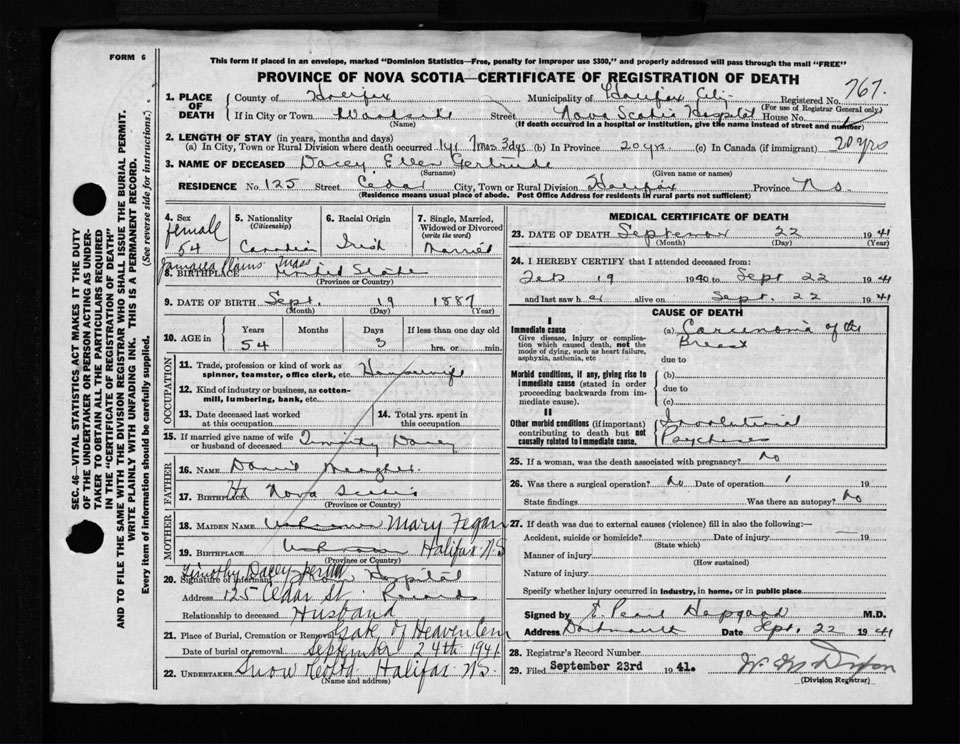 FORM 6
This form if placed in an envelope, marked "Dominion Statistics—Free, penalty for improper use $300," and properly addressed will pass through the mail "FREE"
PROVINCE OF NOVA SCOTIA—CERTIFICATE OF REGISTRATION OF DEATH
767.
1. PLACE OF DEATH
County of Halifax Municipality of Halifax City Registered No.
(For use of Registrar General only)
If in City or Town Woodside Street Nova Scotia Hospital House No.
(Name) (If death occurred in a hospital or institution, give the name instead of street and number)
2. LENGTH OF STAY (in years, months and days)
(a) In City, Town or Rural Division where death occurred 1yr 7mos. 3dys (b) In Province 20 yrs. (c) In Canada (if immigrant) 20 yrs
3. NAME OF DECEASED Dacey Ellen Gertrude
(Surname) (Given name or names)
RESIDENCE No. 125 Street Cedar City, Town or Rural Division Halifax Province N.S.
(Residence means usual place of abode. Post Office Address for residents in rural parts not sufficient)
4. Sex
female
54
5. Nationality
(Citizenship)
Canadian
6. Racial Origin
Irish
7. Single, Married, Widowed or Divorced
(write the word)
Married
Jamaica Plains Mass
8. BIRTHPLACE United States
(Province or Country)
9. DATE OF BIRTH Sept. 19 1887
(Month) (Day) (Year)
10. AGE in
Years Months Days If less than one day old
54 3 hrs. or min.
OCCUPATION
11. Trade, profession or kind of work as spinner, teamster, office clerk, etc. Housewife
12. Kind of industry or business, as cotton-mill, lumbering, bank, etc.
13. Date deceased last worked at this occupation
14. Total yrs. spent in this occupation
15. If married give name of wife or husband of deceased Timothy Dacey
FATHER
16. NAME Daniel Meagher
17. BIRTHPLACE Nova Scotia
(Province or Country)
MOTHER
18. MAIDEN NAME Unknown Mary Fegan
19. BIRTHPLACE Unknown Halifax N.S
(Province or Country)
Timothy Dacey
20. Signature of informant Hospital
Address 125 Cedar St. Records
Relationship to deceased Husband
21. Place of Burial, Cremation or Removal of Heaven Cem
Date of burial or removal September 24th 1941
22. UNDERTAKER Snow & Co Ltd. Halifax N.S.
(Name and address)
MEDICAL CERTIFICATE OF DEATH
23. DATE OF DEATH September 22 1941
(Month) (Day) (Year)
24. I HEREBY CERTIFY that I attended deceased from:
Feb 19 1940 to Sept 22 1941
and last saw her alive on Sept. 22 1941
CAUSE OF DEATH
I
Immediate cause
Give disease, injury or complication which caused death, not the mode of dying, such as heart failure, asphyxia, asthenia, etc
(a) Carcinoma of the Breast
due to
Morbid conditions, if any, giving rise to immediate cause (stated in order proceeding backwards from immediate cause).
(b)
due to
(c)
II
Other morbid conditions (if important) contributing to death but not causally related to immediate cause.
Involutional
Psychoses
25. If a woman, was the death associated with pregnancy? No
26. Was there a surgical operation? No Date of operation
State findings Was there an autopsy? No
27. If death was due to external causes (violence) fill in also the following:—
Accident, suicide or homicide? Date of injury — 19
(State which)
Manner of injury
(How sustained)
Nature of injury
Specify whether injury occurred in industry, in home, or in public place
Signed by E. Pearl Hopgood M.D.
Address Dartmouth Date Sept. 22 1941
28. Registrar's Record Number
29. Filed September 23rd 1941.
(Division Registrar)
SEC. 46—VITAL STATISTICS ACT MAKES IT THE DUTY OF THE UNDERTAKER OR PERSON ACTING AS UNDERTAKER TO OBTAIN ALL THE PARTICULARS REQUIRED IN THE "CERTIFICATE OF REGISTRATION OF DEATH" AND TO FILE THE SAME WITH THE DIVISION REGISTRAR WHO SHALL ISSUE THE BURIAL PERMIT.
WRITE PLAINLY WITH UNFADING INK. THIS IS A PERMANENT RECORD.
Every item of information should be carefully supplied. (See reverse side for instructions.)